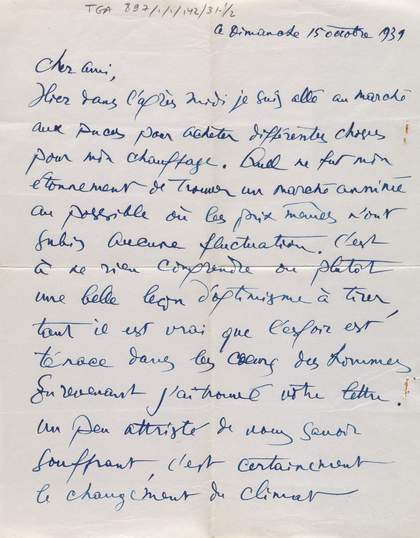 TGA 897/1/1/142/31-1/2
ce Dimanche 15 octobre 1939
Cher ami,
Hier dans l'après midi je suis allé au marché
aux puces pour acheter différentes choses
pour mon chauffage. Quel ne fut mon
étonnement de trouver un marché animé
au possible où les prix mêmes n'ont
subis aucune fluctuation. C'est
à ne rien comprendre ou plutôt
une belle leçon d'optimisme à tirer,
tant il est vrai que l'espoir est
ténace dans les coeurs des hommes
En revenant j'ai trouvé votre lettre.
un peu attristé de vous savoir
souffrant, c'est certainement
le changement du climat